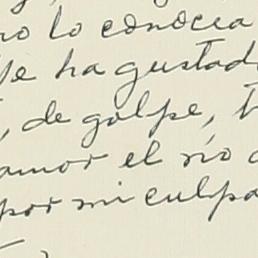 no lo conocía
ha gustado
, de golpe,
amor el río
por mi culpa